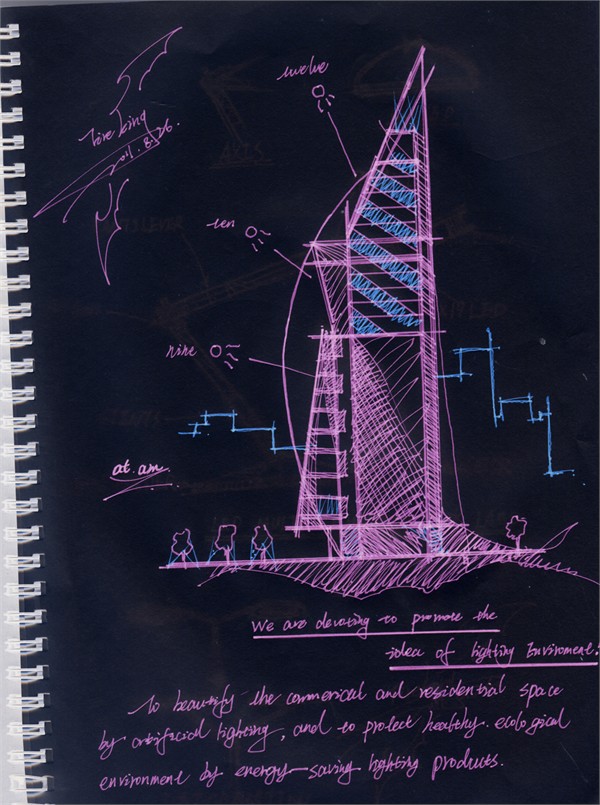 twelve
ten
nine
at. am
We are devoting to promote the
idea of lighting Enviroment.
To beautify the commerical and residential space
by artifacial lighting, and to protect healthy. ecological
environment by energy-saving lighting products.